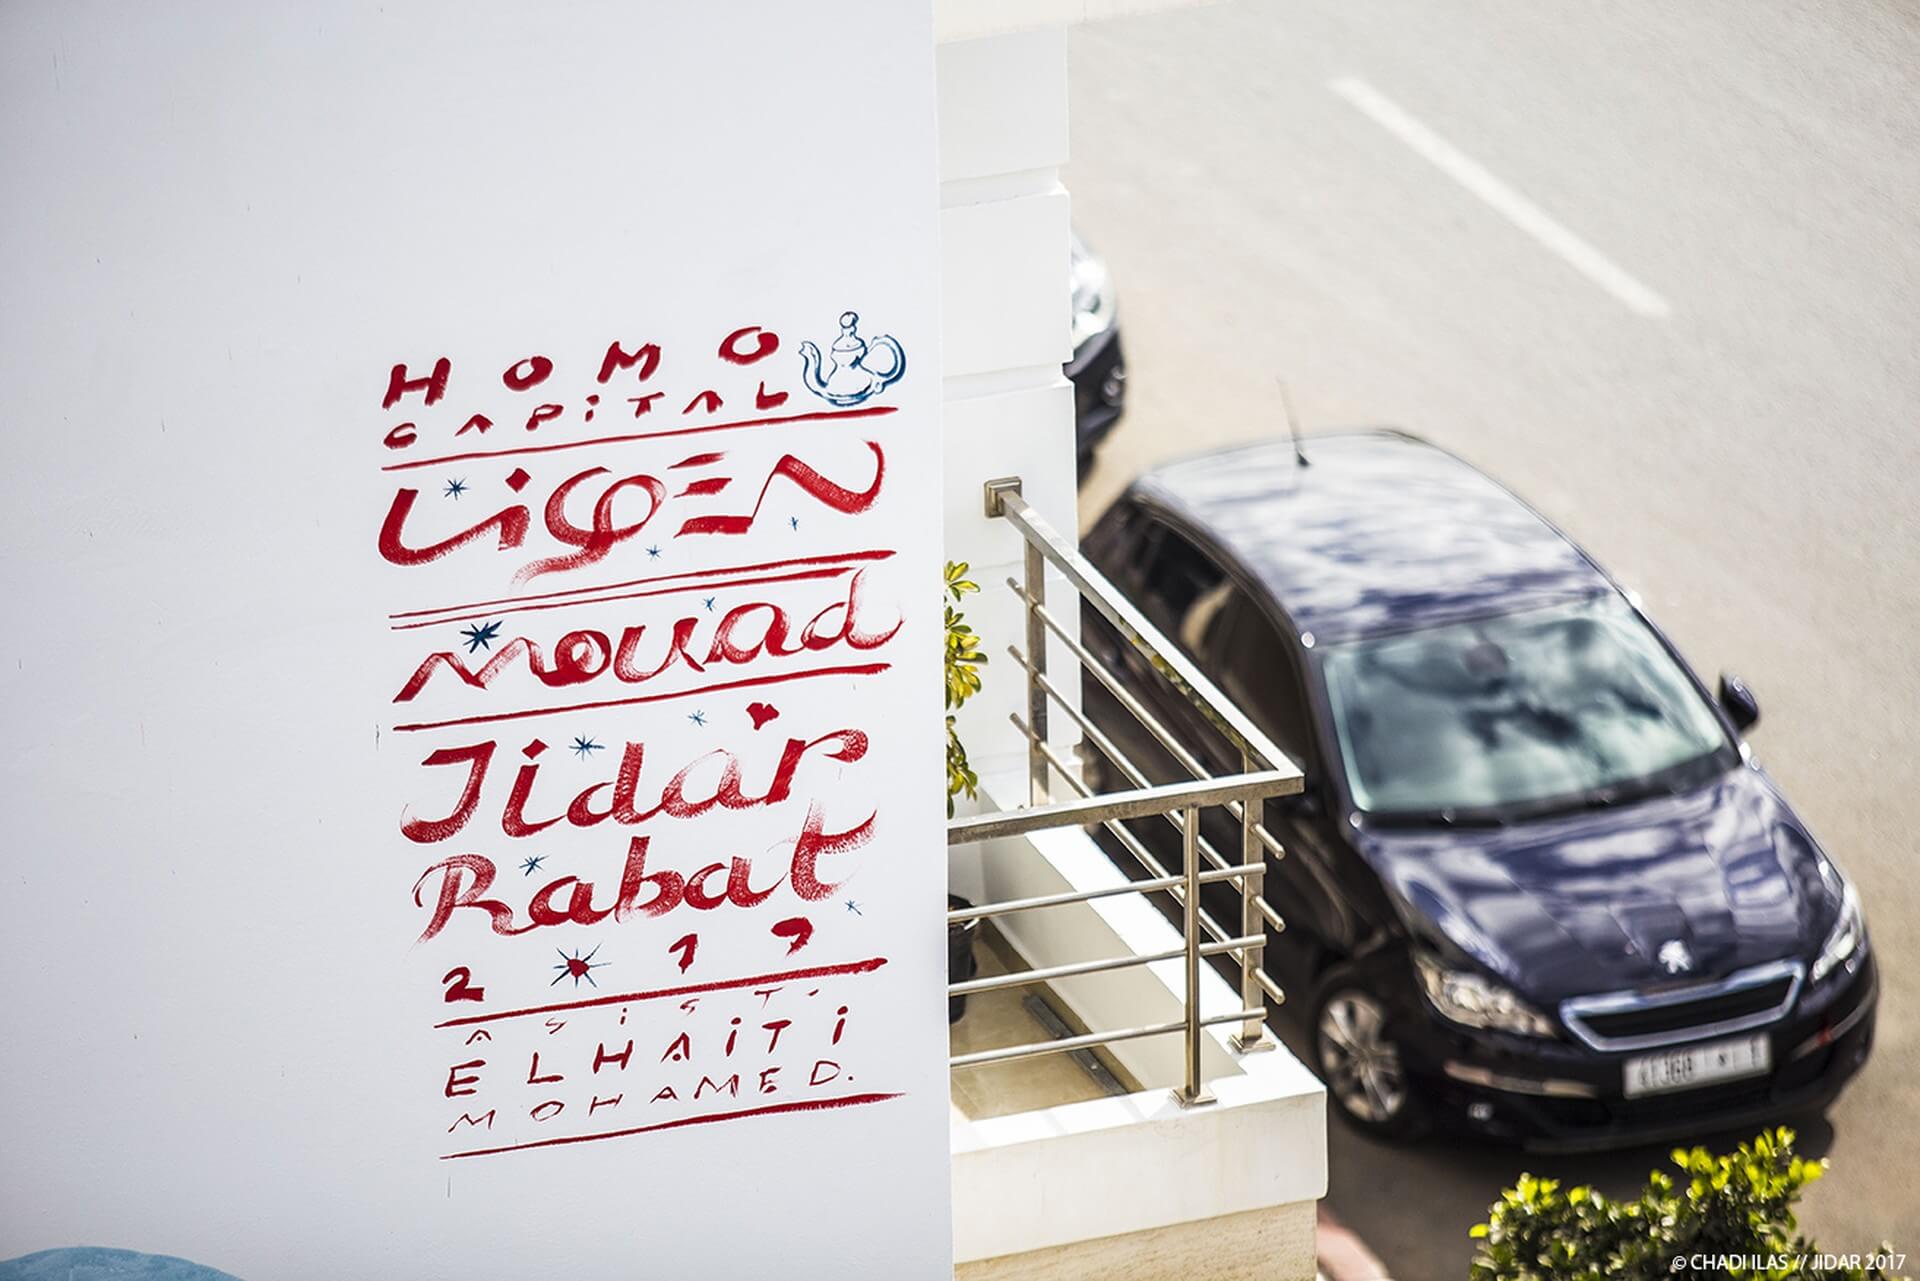 HOMO
CAPiTAL
LiQEN
Mouad
Jidar
Rabat
2 1 7
ASiST.
ELHAiTi
MOHAMED.
© CHADI ILAS // JIDAR 2017